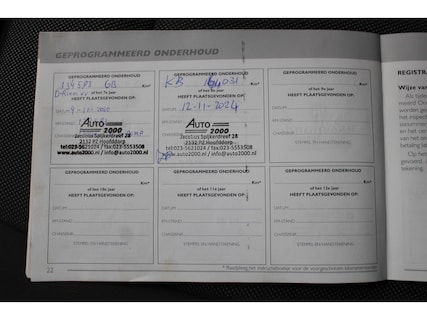 GEPROGRAMMEERD ONDERHOUD
GEPROGRAMMEERD ONDERHOUD
134591 GB
Km*
of het 7e jaar
HEEFT PLAATSGEVONDEN OP:
DATUM
AUTO
2000
Jacobus Spijkerdreef 28
2132 PZ Hoofddorp
tel:023-5621024 / fax:023-5553508
www.auto2000.nl / info@auto2000.nl
GEPROGRAMMEERD ONDERHOUD
KB 164031
Km*
of het 8e jaar
HEEFT PLAATSGEVONDEN OP:
DATUM 12-11-2024
AUTO
2000
Jacobus Spijkerdreef 28
2132 PZ Hoofddorp
tel:023-5621024 / fax:023-5553508
www.auto2000.nl / info@auto2000.nl
GEPROGRAMMEERD ONDERHOUD
Km*
of het 9e jaar
HEEFT PLAATSGEVONDEN OP:
DATUM
KM-STAND
CHASSISNR.
STEMPEL EN HANDTEKENING
GEPROGRAMMEERD ONDERHOUD
Km*
of het 10e jaar
HEEFT PLAATSGEVONDEN OP:
DATUM
KM-STAND
CHASSISNR.
STEMPEL EN HANDTEKENING
GEPROGRAMMEERD ONDERHOUD
Km*
of het 11e jaar
HEEFT PLAATSGEVONDEN OP:
DATUM
KM-STAND
CHASSISNR.
STEMPEL EN HANDTEKENING
GEPROGRAMMEERD ONDERHOUD
Km*
of het 12e jaar
HEEFT PLAATSGEVONDEN OP:
DATUM
KM-STAND
CHASSISNR.
STEMPEL EN HANDTEKENING
22
* Raadpleeg het instructieboekje voor de voorgeschreven kilometerstanden
REGISTRA
Wijze van